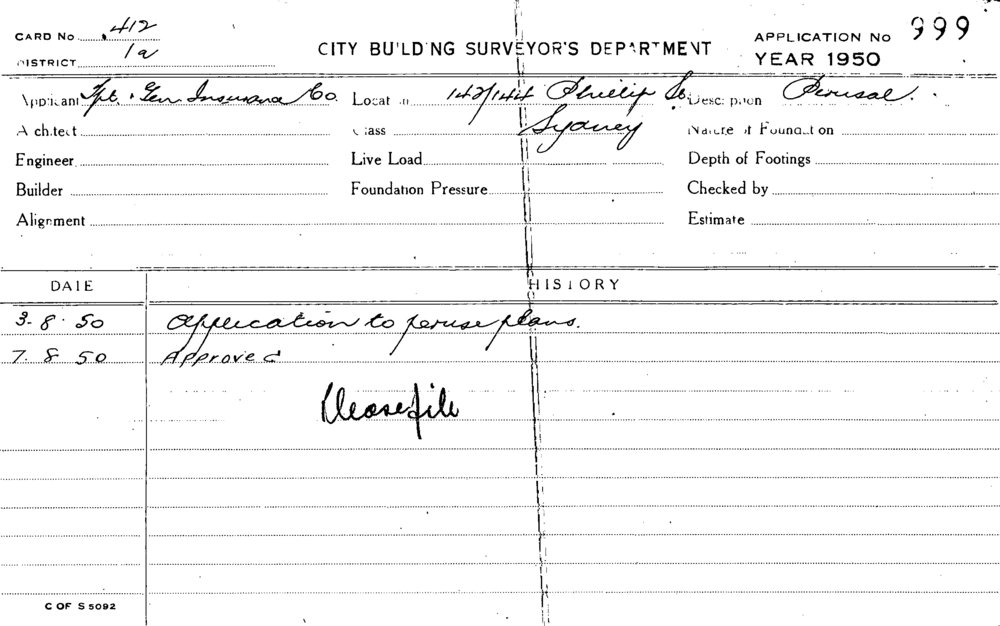 CARD No 412
DISTRICT 1a
CITY BUILDING SURVEYOR'S DEPARTMENT
APPLICATION No 999
YEAR 1950
Applicant Tpt. & Gen Insurance Co. Location 142/144 Phillip St. Description Perusal.
Architect Class Sydney Nature of Foundation
Engineer Live Load Depth of Footings
Builder Foundation Pressure Checked by
Alignment Estimate
DATE HISTORY
3-8-50 Application to peruse plans.
7 8 50 Approved
Please file
C OF S 5092